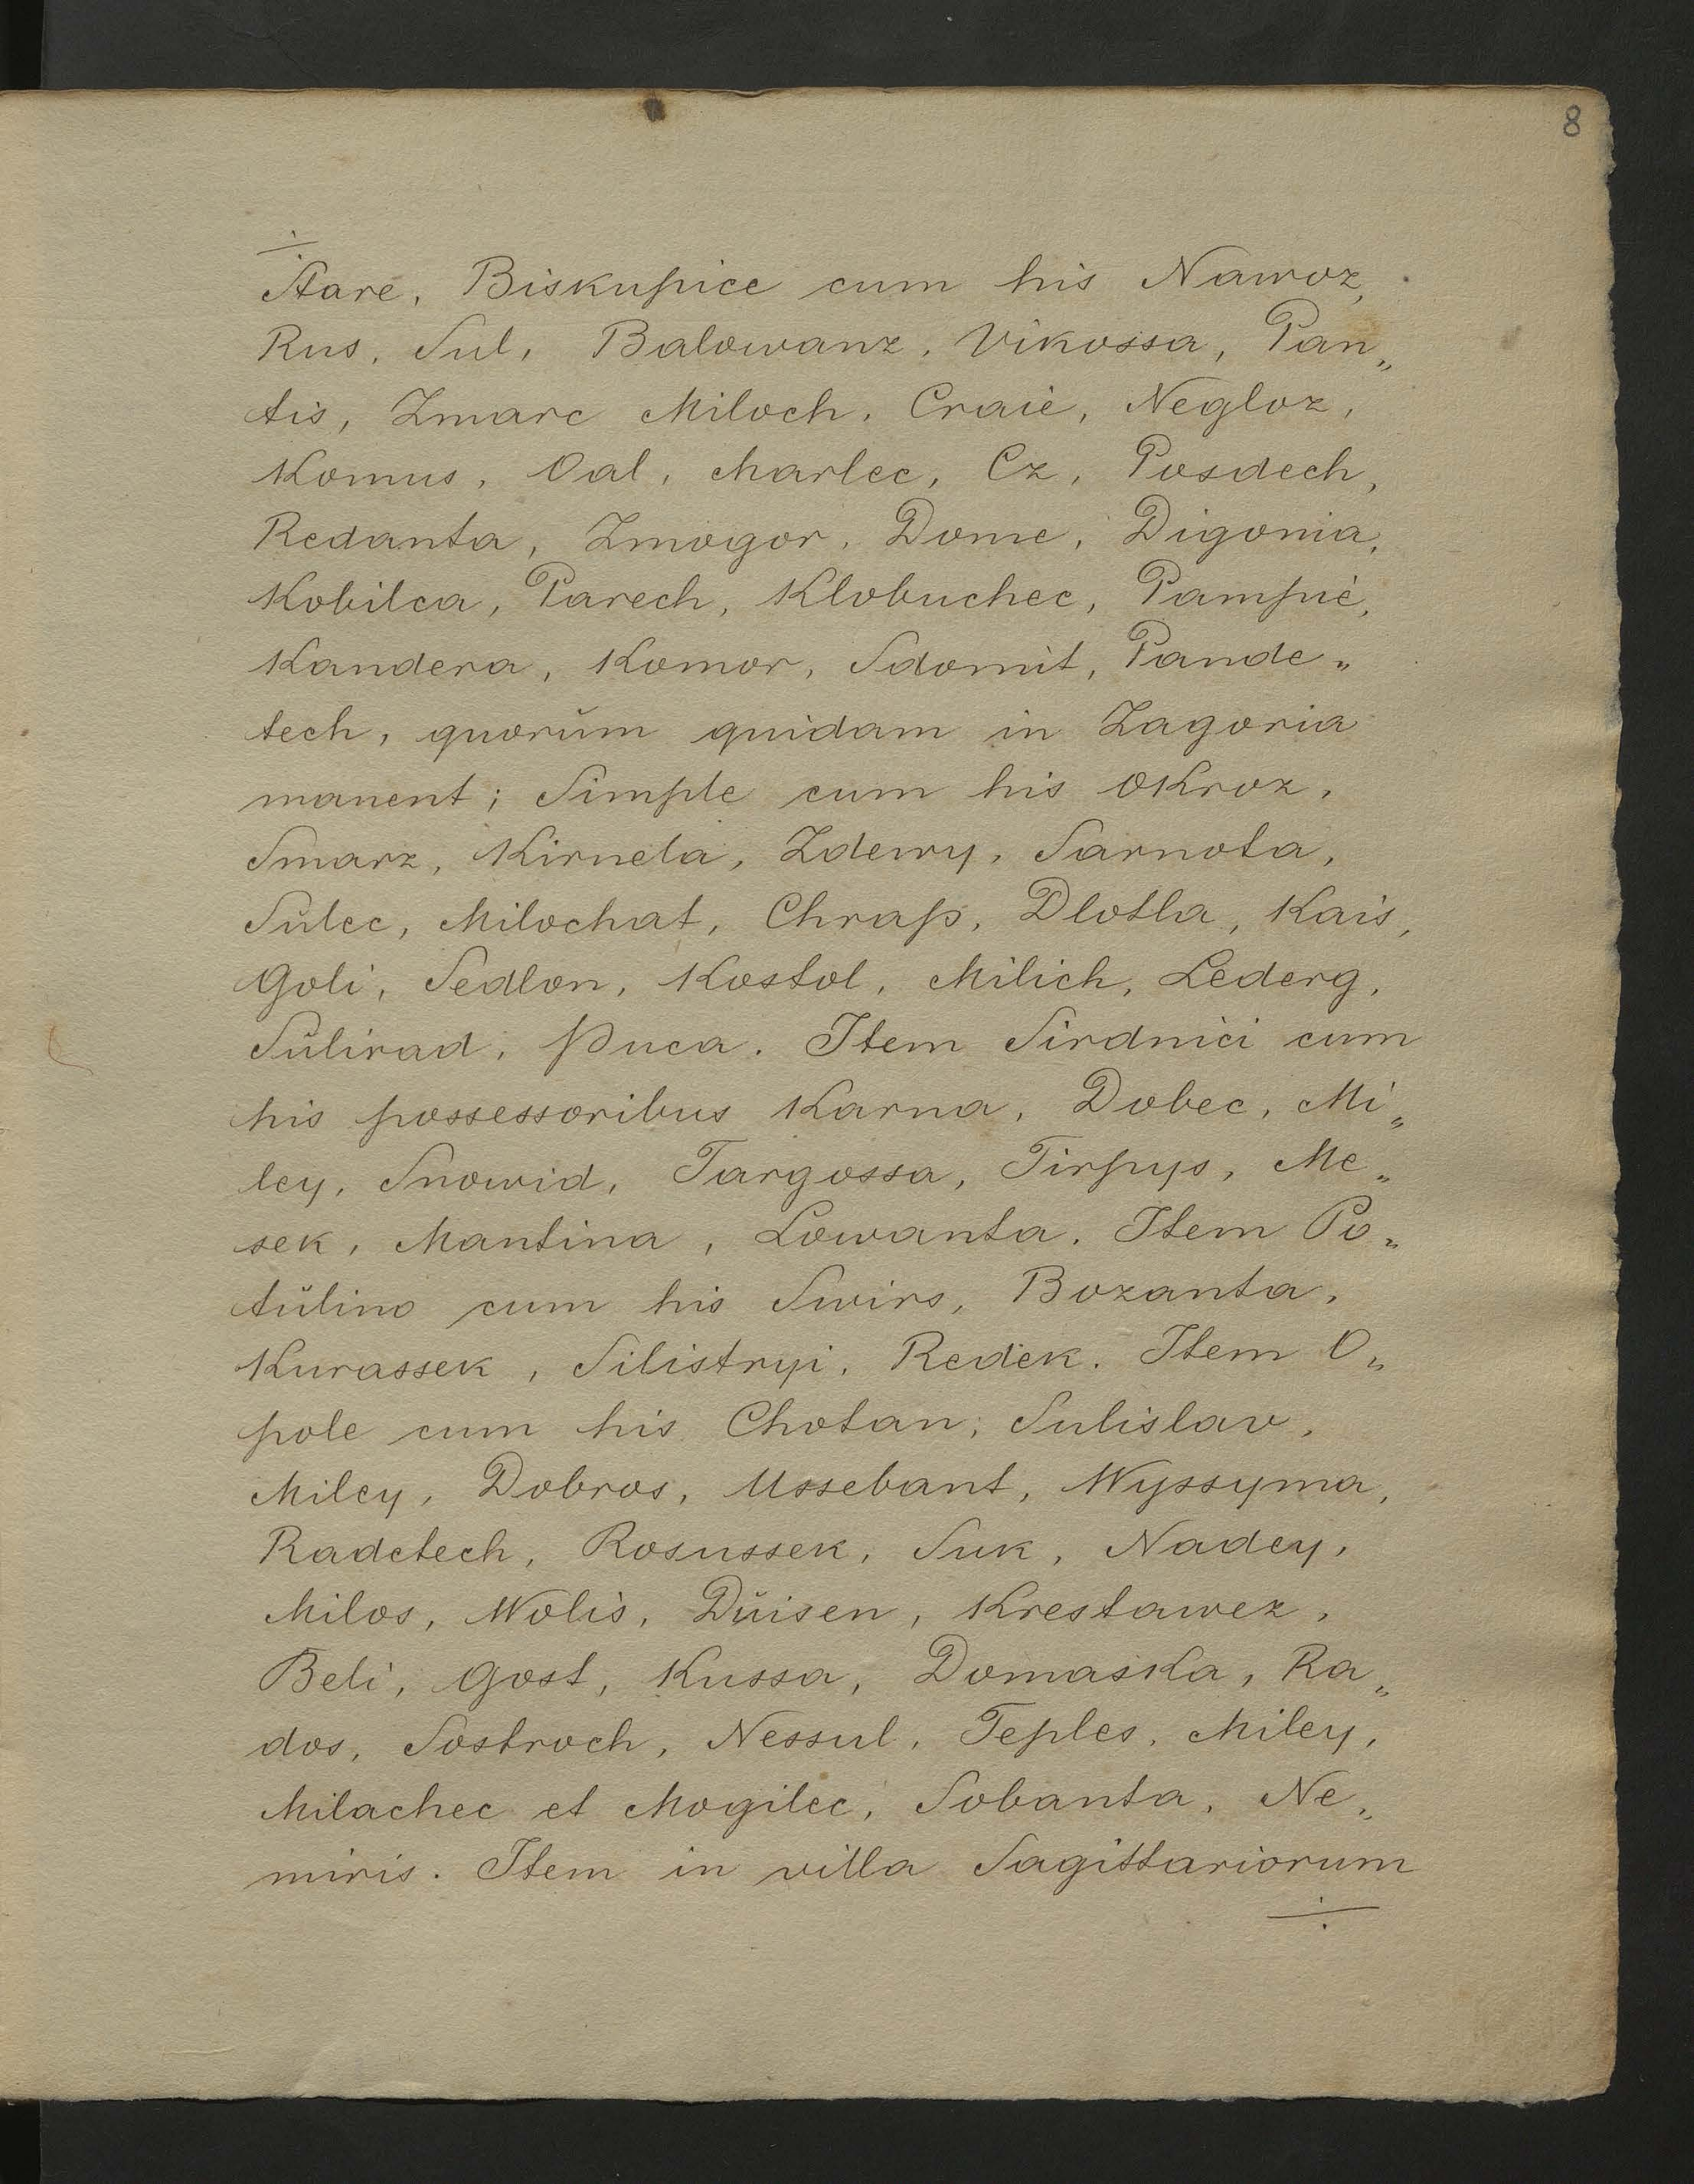 8
÷
Stare, Biskupice cum his Nawoz,
Rus, Sul, Balowanz, Vikossa, Pan„
tis, Zmarc Miloch, Craie, Negloz,
Komus, Oal, Marlec, Cz, Posdech,
Redanta, Zmogor, Dome, Digonia,
Kobilca, Parech, Klobuchec, Pampie,
Kandera, Komor, Sdomit, Pande„
tech, quorŭm quidam in Zagoria
manent; Simple cum his Okroz,
Smarz, Kirnela, Zdewy, Sarnota,
Sŭlec, Milochat, Chraps, Dlotla, Kais,
Goli, Sedlon, Kostol, Milich, Lederg,
Sŭlirad, Puca. Item Sirdnici cum
his possessoribus Karna, Dobec, Mi„
ley, Snowid, Targossa, Tirpys, Me„
sek, Mantina, Lowanta. Item Po„
tŭlino cum his Swirs, Bozanta,
Kurassek, Silistryi, Redek. Item O„
pole cum his Chotan, Sulislav,
Miley, Dobros, Ussebant, Wyssyma,
Radetech, Rosussek, Suk, Nadey,
Milos, Wolis, Dŭisen, Krestawez,
Beli, Gost, Kussa, Domaska, Ra„
dos, Sostroch, Nessul, Teples, Miley,
Milachec et Mogilec, Sobanta, Ne„
miris. Item in villa Sagittariorum
÷